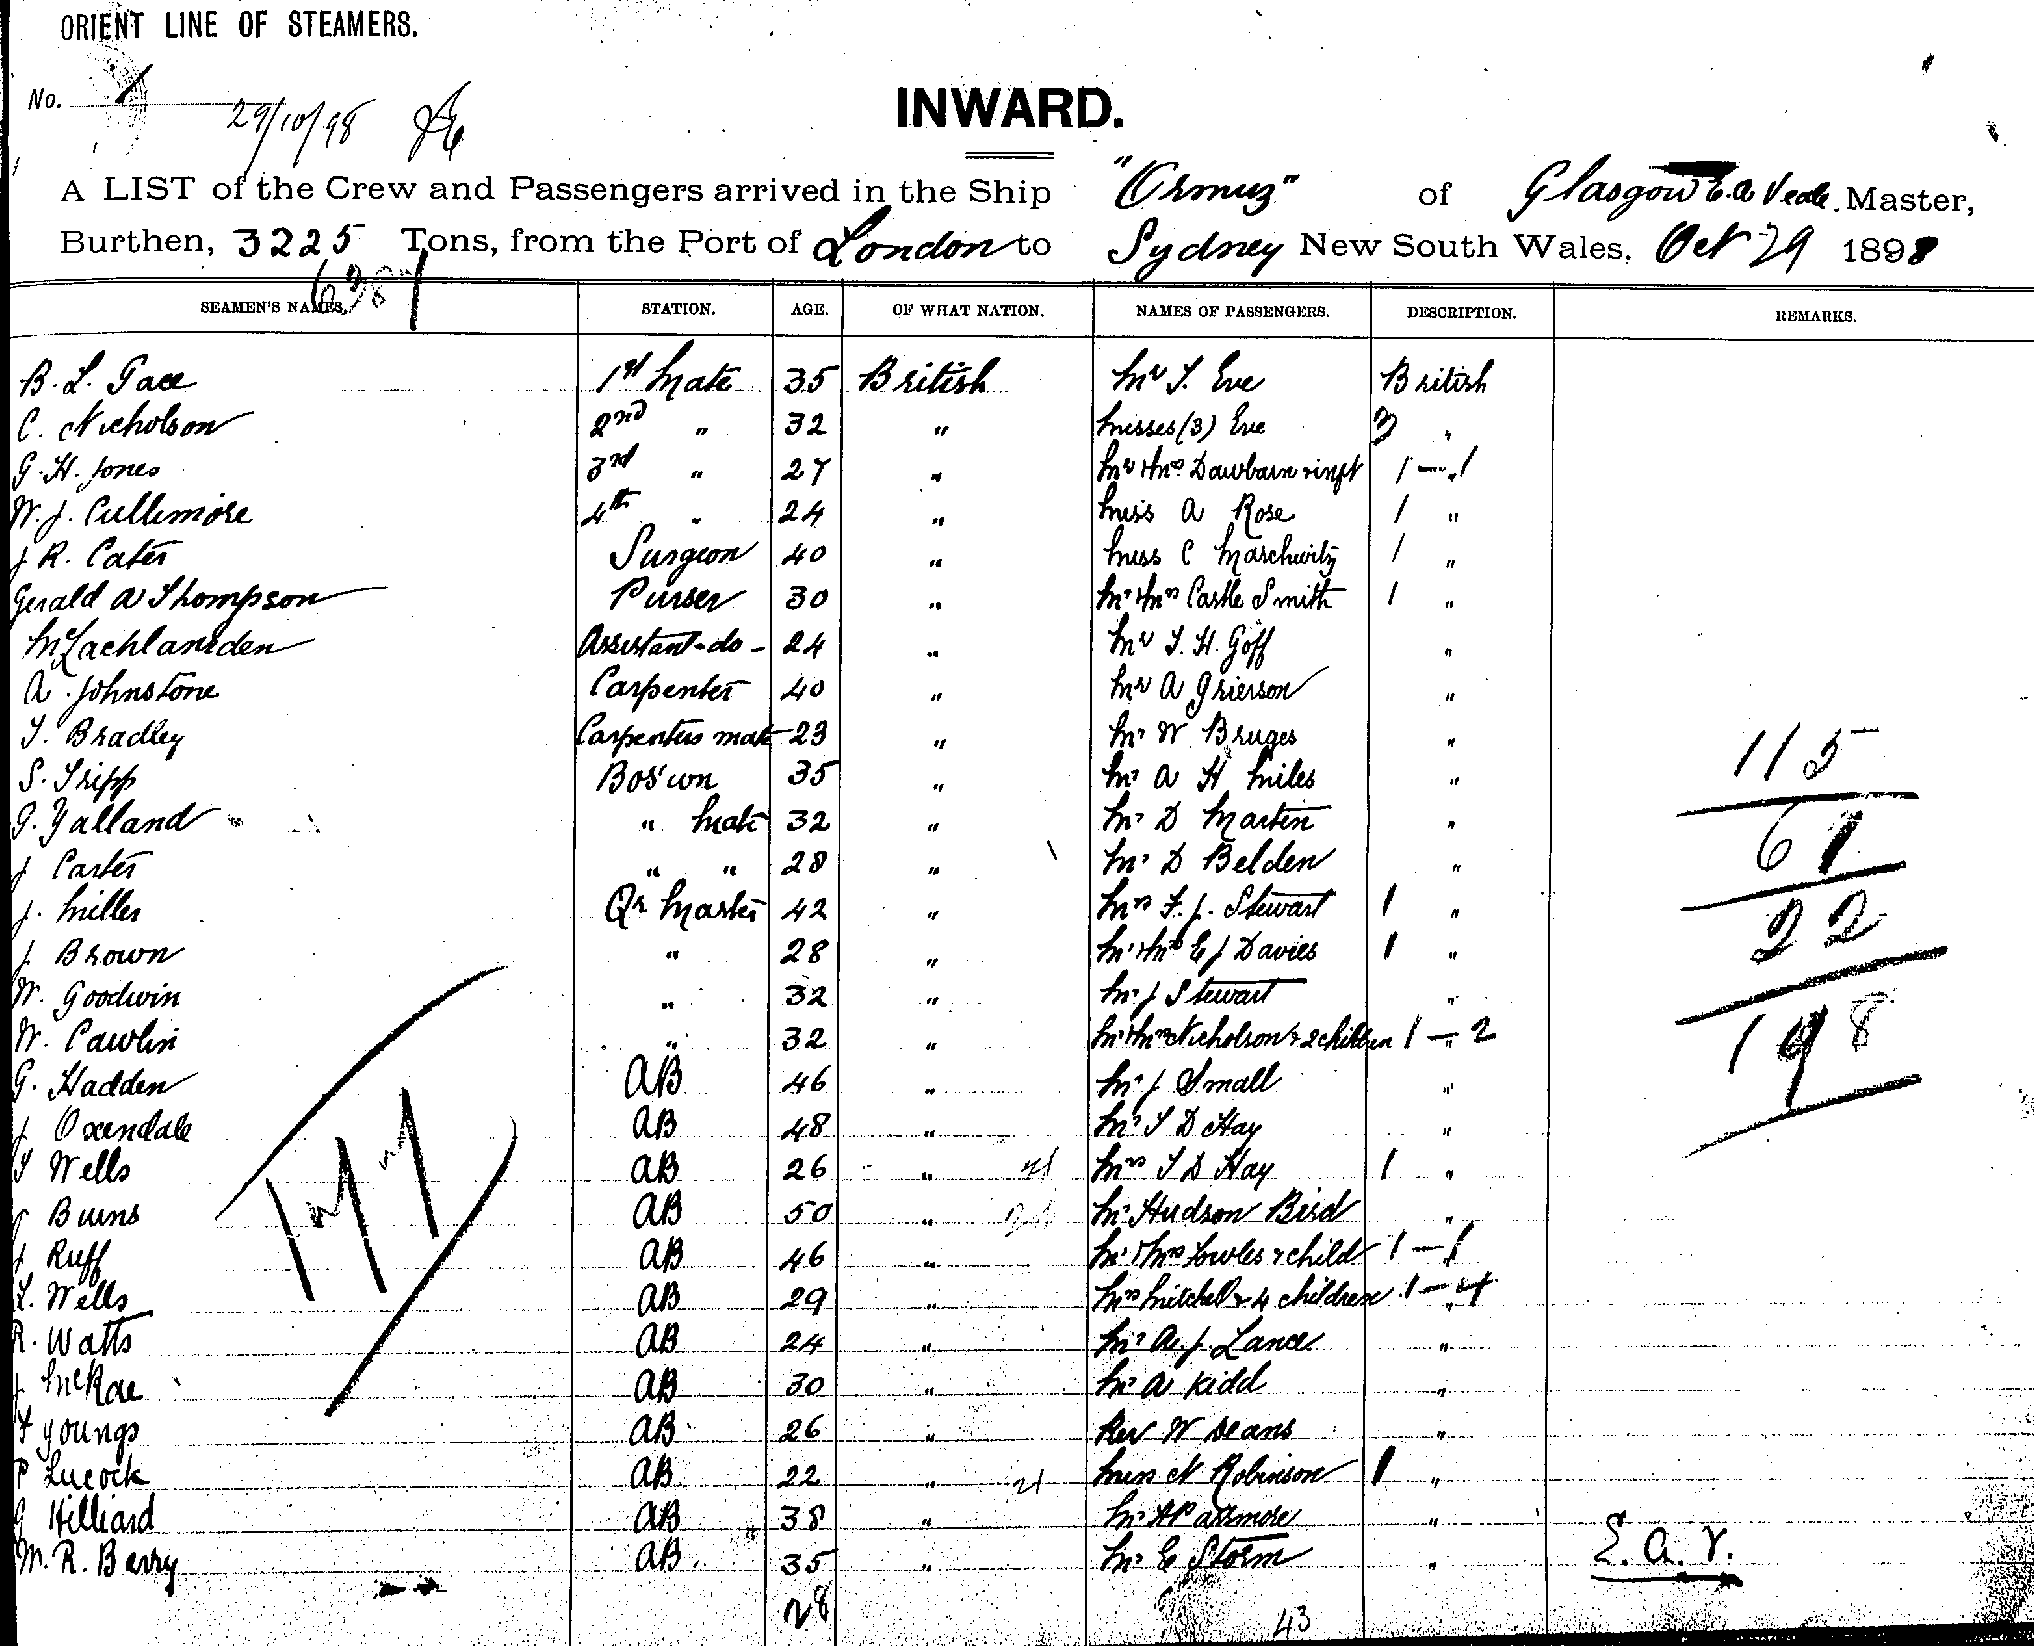 ORIENT LINE OF STEAMERS.
No. 1
29/10/98
INWARD.
A LIST of the Crew and Passengers arrived in the Ship "Ormuz" of Glasgow E. A. Veale. Master,
Burthen, 3225 Tons, from the Port of London to Sydney New South Wales, Oct 29 1898
6387
SEAMEN'S NAMES. STATION. AGE. OF WHAT NATION. NAMES OF PASSENGERS. DESCRIPTION. REMARKS.
B. L. Pace 1st Mate 35 British Mr T. Eve British
C. Nicholson 2nd " 32 " Misses (3) Eve 3 "
G. H. Jones 3rd " 27 " Mr & Mrs Dawbarn & inft 1 — " 1
W. J. Cullimore 4th " 24 " Miss A Rose 1 "
J R. Cater Surgeon 40 " Miss C Marchwitz 1 "
Gerald A Thompson Purser 30 " Mr & Mrs Castle Smith 1 "
Assistant - do - 24 " Mr T. H. Goff "
A. Johnstone Carpenter 40 " Mr A Grierson "
T. Bradley Carpenters mate 23 " Mr W Bruges "
S. Tripp Bos'wn 35 " Mr A H Miles "
G. Yalland " Mate 32 " Mr D Martin "
J Carter " " 28 " Mr D Belden "
J. Miller Qr Master 42 " Mrs F. J. Stewart 1 "
J Brown " 28 " Mr & Mrs E J Davies 1 "
W. Goodwin " 32 " Mr J Stewart "
W. Cawlin " 32 " Mr & Mrs Nicholson & 2 children 1 — " 2
G. Hadden AB 46 " Mr J Small "
J Oxendale AB 48 " Mr T D Hay "
T Wells AB 26 " Mrs T D Hay 1 "
J Burns AB 50 " Mr Hudson Bird "
J Ruff AB 46 " Mr & Mrs Fowles & child 1 — 1
T. Wells AB 29 " Mrs Mitchell & 4 children 1 — 4
R. Watts AB 24 " Mr A. J. Lance "
J McRae AB 30 " Mr A Kidd "
F Youngs AB 26 " Rev W Deans "
P Lucock AB 22 " Miss N Robinson 1 "
G Hilliard AB 38 " "
M. R. Berry AB 35 " Mr E Storm "
28 43
115
61
22
198
E. A. V.